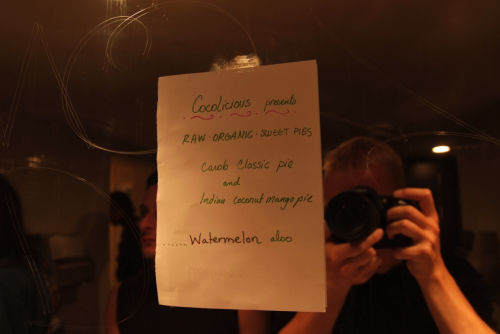 Cocolicious presents
RAW · ORGANIC · SWEET PIES
Carob Classic pie
and
Indian coconut mango pie
...... Watermelon also